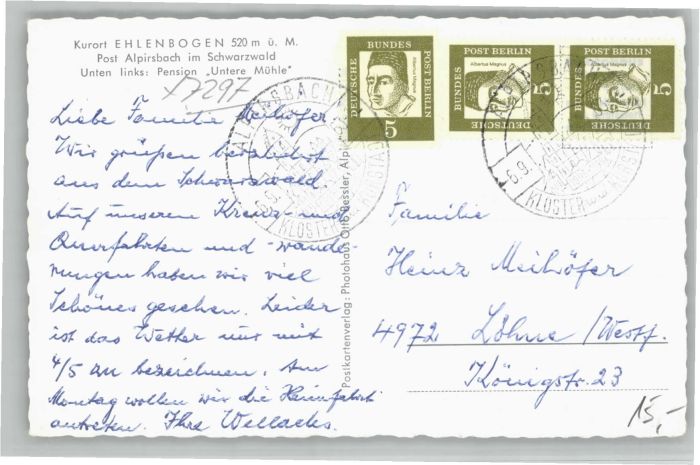 Kurort EHLENBOGEN 520 m ü. M.
Post Alpirsbach im Schwarzwald
Unten links: Pension „Untere Mühle"
77297
Liebe Familie Meihöfer
Wir grüßen herzlichst
aus dem Schwarzwald.
Auf unseren Kreuz- und
Querfahrten und -wande-
rungen haben wir viel
Schönes gesehen. Leider
ist das Wetter nur mit
4/5 an bezeichnen. Am
Montag wollen wir die Heimfahrt
antreten. Ihre Wellachs.
Postkartenverlag: Photohaus Otto Bessler, Alpirsbach
DEUTSCHE BUNDES POST BERLIN
Albertus Magnus
5
DEUTSCHE BUNDES POST BERLIN
Albertus Magnus
5
DEUTSCHE BUNDES POST BERLIN
Albertus Magnus
5
ALPIRSBACH
6.9.
KLOSTER
ALPIRSBACH
6.9.
KLOSTER
Familie
Heinz Meihöfer
4972 Löhne /Westf.
Königstr. 23
15,-